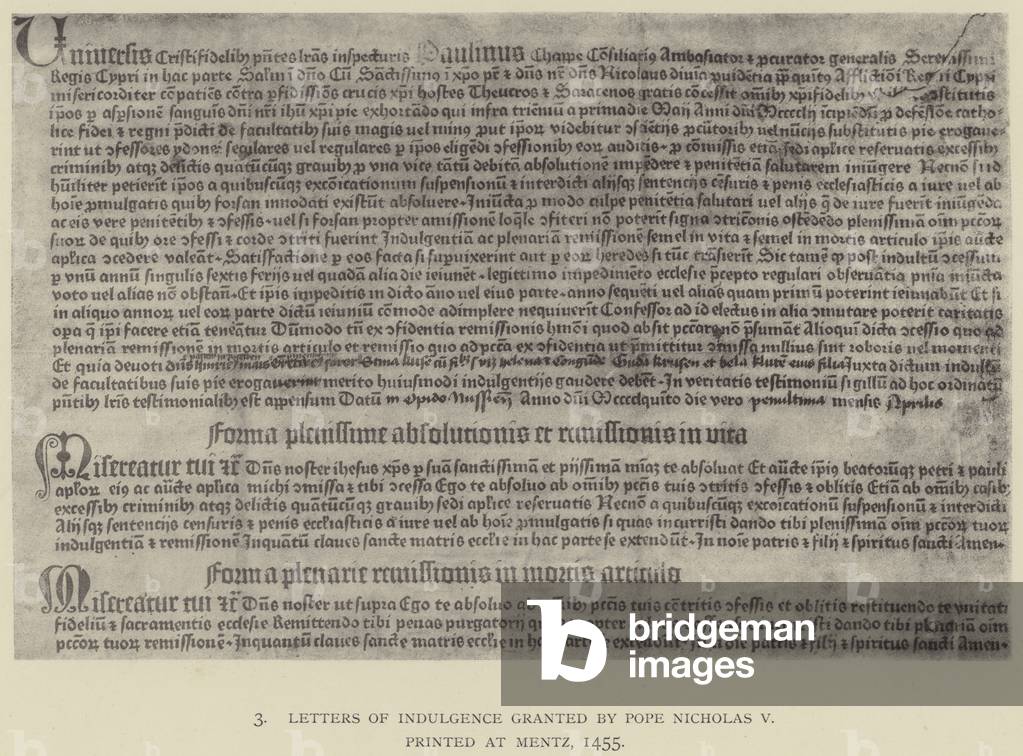 Uniuersis Cristifidelibꝫ pñtes lrãs inspecturis Paulinus Chappe Cõsiliariꝰ Ambasiator ⁊ ꝓcurator generalis Serenissimi
Regis Cypri in hac parte Salutẽ ĩ dño Cũ Sãctissimꝰ ĩ xp̃o pr̃ ⁊ dñs nr̃ dñs Nicolaus diuĩa ꝓuidẽtia pp̃ quĩtꝰ Afflictiõi Regni Cypri
misericorditer cõpatiẽs cõtra ꝑfidissiõs crucis xp̃i hostes Theucros ⁊ Saracenos gratis cõcessit om̃ibꝫ xp̃ifidelibꝫ cõstitutis
ip̃os ꝑ aspersionẽ sanguĩs dñi nr̃i ih̃u xp̃i pie exhortãdo qui infra triẽniũ a prima die Maij Anni dñi Mcccclij ĩcipiẽdũ ꝓ defẽsiõe catho-
lice fidei ⁊ regni p̃dicti de facultatibꝫ suis magis vel minꝰ ꝓut ip̃oꝝ videbitur ↄsciẽtijs ꝓcũtoribꝫ vel nũcijs substitutis pie erogaue-
rint ut ↄfessores ydonei seculares vel regulares ꝑ ip̃os eligẽdi ↄfessionibꝫ eoꝝ auditis· ꝓ cõmissis etiã Sedi aplĩce reseruatis excessibꝫ
criminibꝫ atqꝫ delictis quãtũcũqꝫ grauibꝫ ꝓ vna vice tãtũ debitã absolutionẽ impẽdere ⁊ penitẽtiã salutarem iniũgere Necnõ si id
hũiliter petierĩt ip̃os a quibuscũqꝫ excõicationum suspensionũ ⁊ interdicti alijsqꝫ sentencijs cẽsuris ⁊ penis ecclesiasticis a iure vel ab
hoĩe ꝓmulgatis quibꝫ forsan innodati existũt absoluere· Iniũcta ꝓ modo culpe penitẽtia salutari vel alijs q̃ de iure fuerĩt iniũgẽda
ac eis vere penitẽtibꝫ ⁊ ↄfessis· vel si forsan propter amissionẽ loq̃le ↄfiteri nõ poterĩt signa ↄtriciõnis ostẽdẽdo plenissimã oĩm pctõꝝ
suoꝝ de quibꝫ ore ↄfessi ⁊ corde ↄtriti fuerint Indulgentiã ac plenariã remissionẽ semel in vita ⁊ semel in mortis articulo ip̃is aũcte
aplĩca ↄcedere valeãt· Satisfactione ꝑ eos facta si supuixerint aut ꝑ eoꝝ heredes si tũc trãsierĩt Sic tamẽ ꝙ post indultũ ↄcessum
ꝑ vnũ annũ singulis sextis ferijs vel quadã alia die ieiunẽt· legittimo impedimẽto ecclesie p̃cepto regulari obseruãtia pñia iniũcta
voto vel alias nõ obstañ· Et ip̃is impeditis in dicto ãno vel eius parte· anno sequẽti vel alias quam primũ poterint ieiunabũt Et si
in aliquo annoꝝ vel eoꝝ parte dictũ ieiuniũ cõmode adimplere nequiuerĩt Confessor ad id electus in alia ↄmutare poterit caritatis
oꝑa q̃ ip̃i facere etiã teneãtur Dũmodo tñ ex ↄfidentia remissionis hmõi quod absit pctãre nõ p̃sumãt Alioqui dicta ↄcessio quo ad
plenariam remissionẽ in mortis articulo et remissio quo ad pctã ex ↄfidentia ut p̃mittitur ↄmissa nullius sint roboris vel momenti
Et quia deuoti Juxta dictum indultũ
de facultatibus suis pie erogauerunt merito huiusmodi indulgentijs gaudere debẽt· In veritatis testimoniũ sigillũ ad hoc ordinatũ
pñtibꝫ lrĩs testimonialibꝫ est appensum Datũ in Anno dñi Mccccl quinto die vero penultima mensis Aprilis
Forma plenissime absolutionis et remissionis in vita
Misereatur tui ⁊c̃ Dñs noster ihesus xp̃s ꝑ suã sanctissimã et pijssimã miãꝫ te absoluat Et aũcte ip̃iꝰ beatorũqꝫ petri ⁊ pauli
aplõꝝ eiꝰ ac aũcte aplĩca michi ↄmissa ⁊ tibi ↄcessa Ego te absoluo ab om̃ibꝫ pctĩs tuis ↄtritis ↄfessis ⁊ oblitis Etiã ab om̃ibꝫ casibꝫ
excessibꝫ criminibꝫ atqꝫ delictis quãtũcũqꝫ grauibꝫ sedi aplĩce reseruatis Necnõ a quibuscũqꝫ excõicationũ suspensionũ ⁊ interdicti
Alijsqꝫ sentencijs censuris ⁊ penis ecclĩasticis a iure vel ab hoĩe ꝓmulgatis si quas incurristi dando tibi plenissimã oĩm pctõꝝ tuoꝝ
indulgentiã ⁊ remissionẽ Inquantũ claues sancte matris ecclĩe in hac parte se extendũt· In noĩe patris ⁊ filij ⁊ spiritus sancti Amen·
Forma plenarie remissionis in mortis articulo
Misereatur tui ⁊c̃ Dñs noster ut supra Ego te absoluo ab om̃ibꝫ pctĩs tuis cõtritis ↄfessis et oblitis restituendo te vnitati
fideliũ ⁊ sacramentis ecclesie Remittendo tibi penas purgatorij dando tibi plenariã oĩm
pctõꝝ tuoꝝ remissionẽ· Inquantũ claues sancte matris ecclĩe in hac parte se extendũt· In noĩe patris ⁊ filij ⁊ spiritus sancti Amen·
bridgeman
images
3. LETTERS OF INDULGENCE GRANTED BY POPE NICHOLAS V.
PRINTED AT MENTZ, 1455.